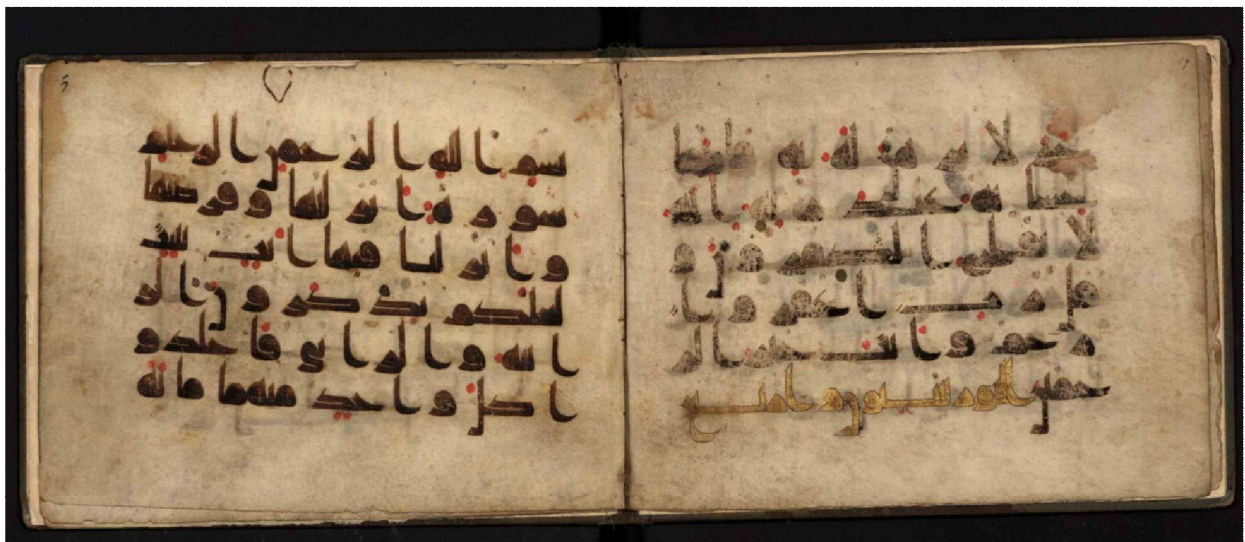 خر لا برهن له به فانما
حسابه عند ربه انه
لا يفلح الكفرون و
قل رب اغفر وا
رحم وانت خير الر
حمين النور ستون واربع
بسم الله الرحمن الرحيم
سورة انزلنها وفرضنها
وانزلنا فيها ايت بينت
لعلكم تذكرون الز
انية والزاني فاجلدو
ا كل واحد منهما مائة